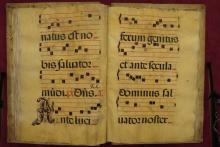 natus est no
bis salvator
mūdi. Dñs.
Ante luci
ferum genitus
et ante secula
dominus sal
vator noster.